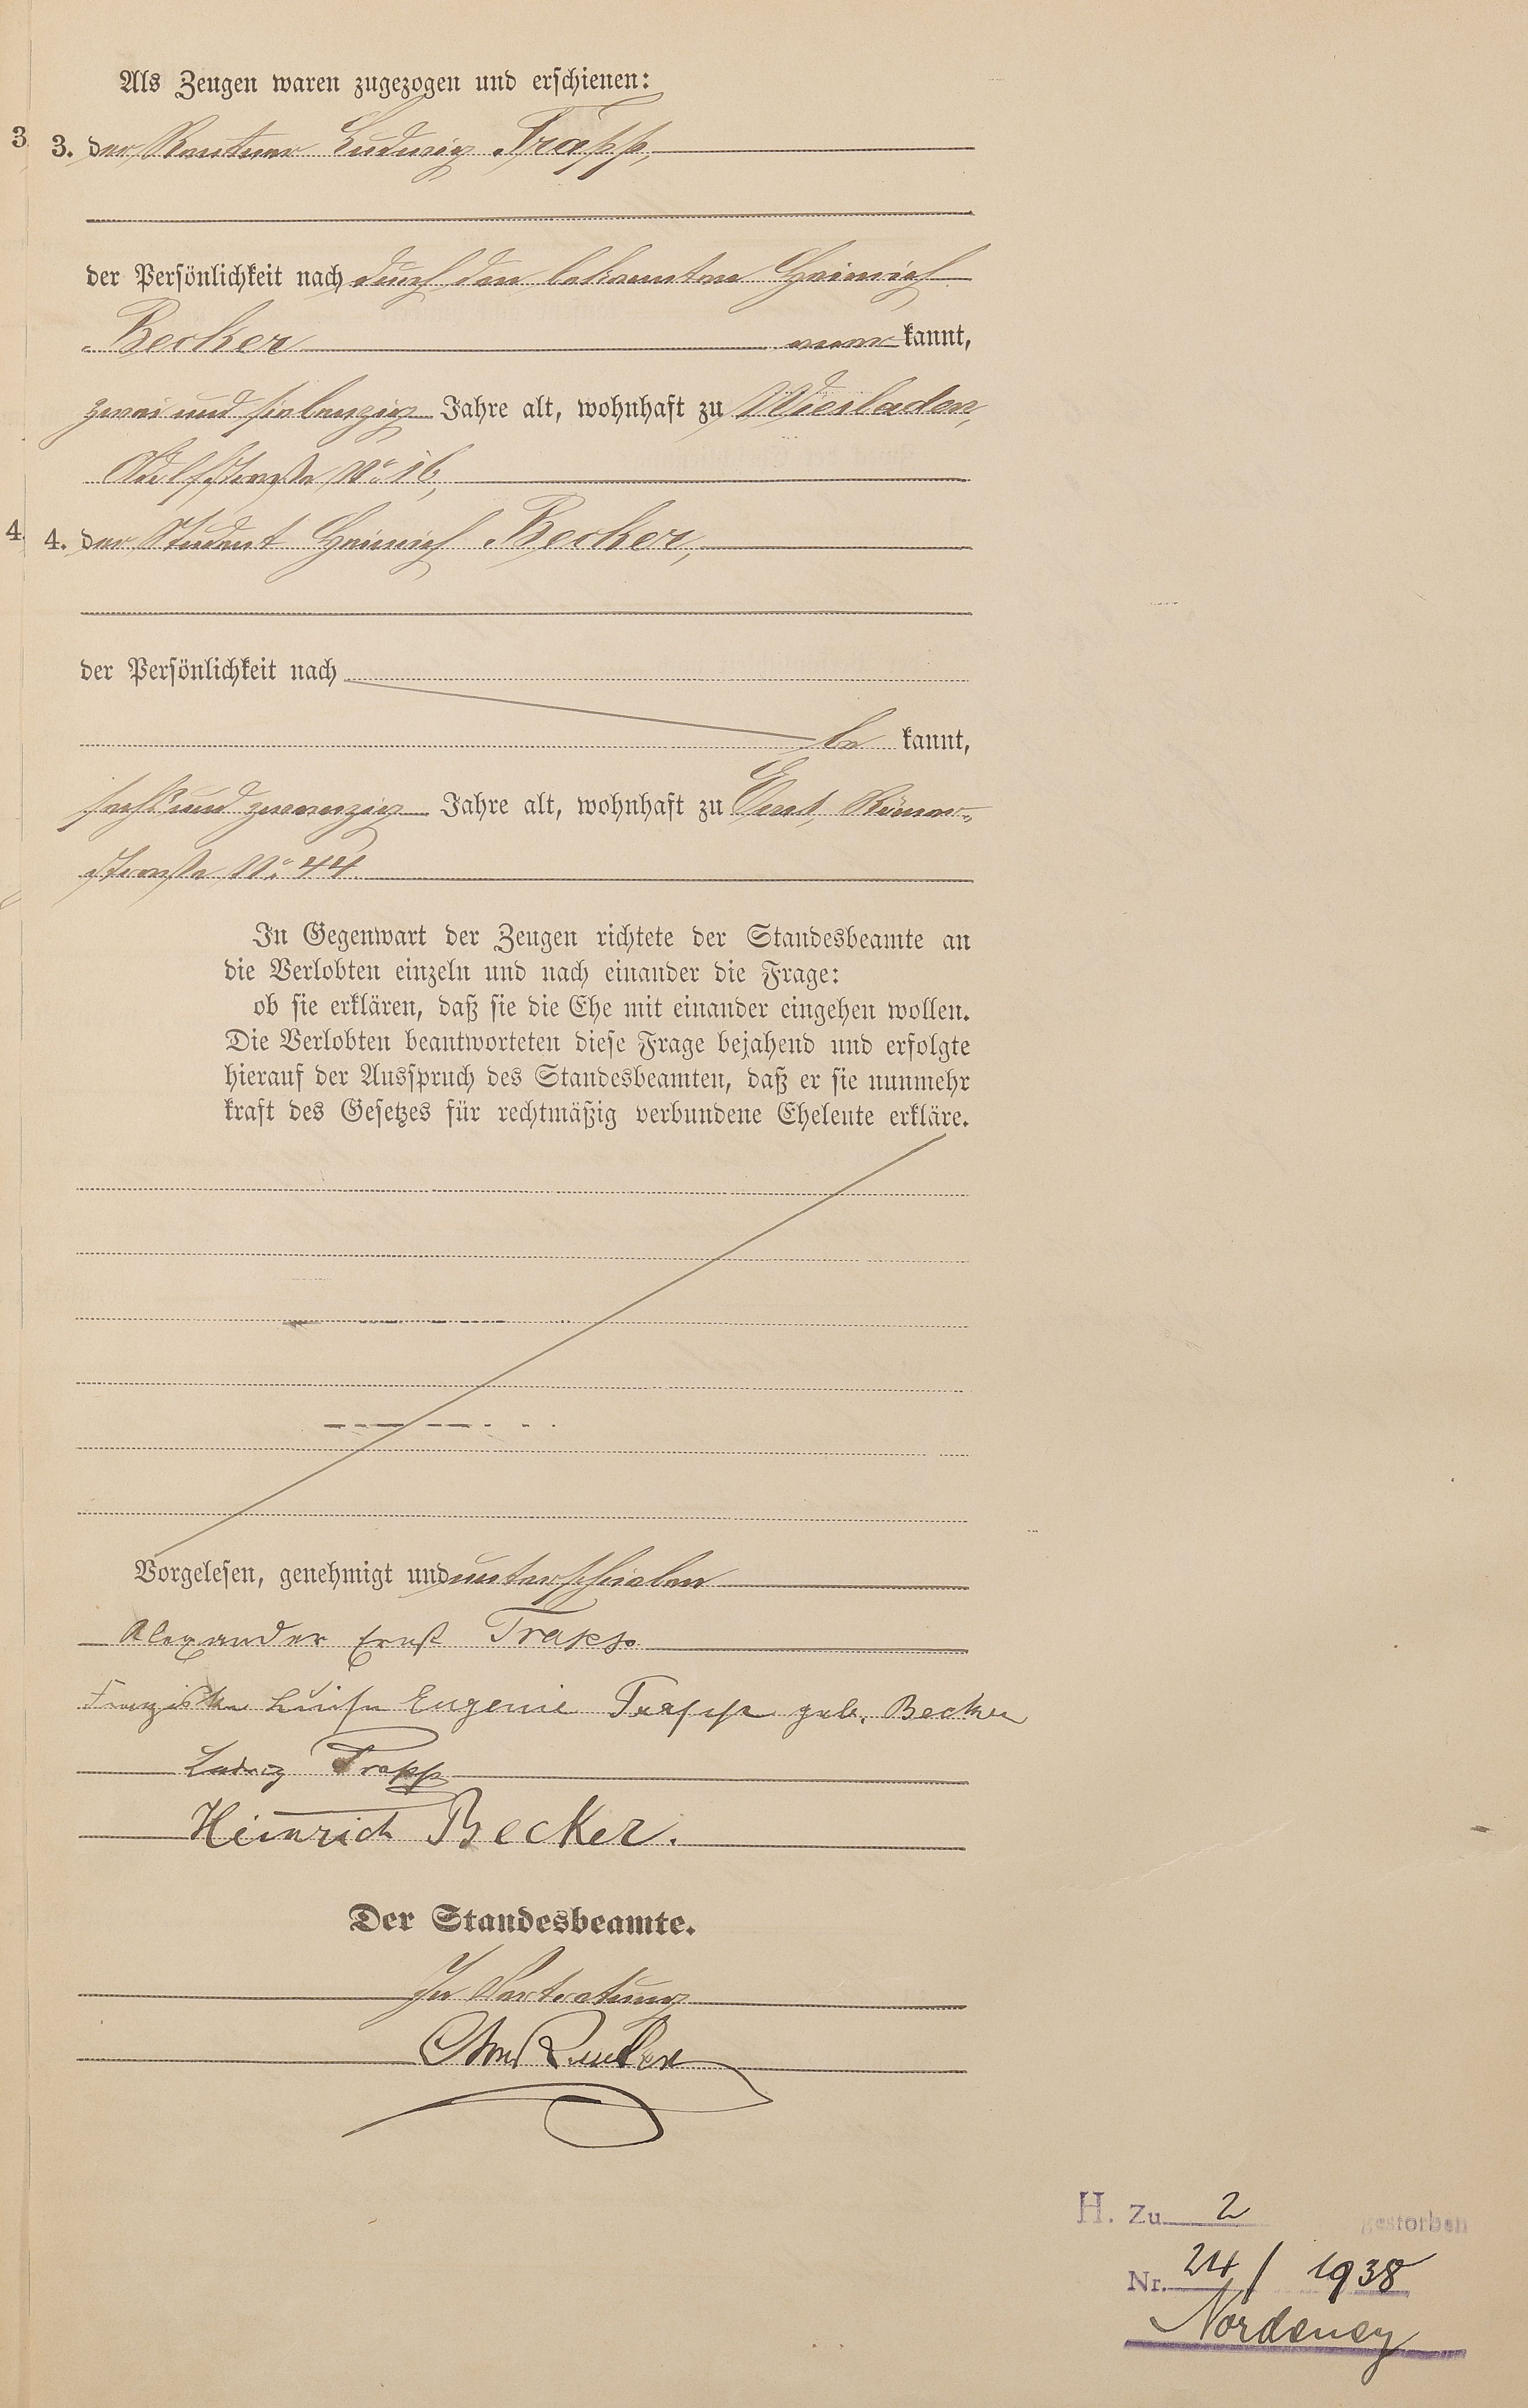 Als Zeugen waren zugezogen und erschienen:
3 3. der Rentner Ludwig Trapp,
der Persönlichkeit nach durch den bekannten Heinrich
Becker aner kannt,
zwei und siebenzig Jahre alt, wohnhaft zu Wiesbaden,
Adolfstraße No 16,
4. 4. der Student Heinrich Becker,
der Persönlichkeit nach
be kannt,
sechs und zwanzig Jahre alt, wohnhaft zu Ems, Römer-
straße No 44.
In Gegenwart der Zeugen richtete der Standesbeamte an
die Verlobten einzeln und nach einander die Frage:
ob sie erklären, daß sie die Ehe mit einander eingehen wollen.
Die Verlobten beantworteten diese Frage bejahend und erfolgte
hierauf der Ausspruch des Standesbeamten, daß er sie nunmehr
kraft des Gesetzes für rechtmäßig verbundene Eheleute erkläre.
Vorgelesen, genehmigt und unterschrieben
Alexander Ernst Trapp
Franziska Luise Eugenie Trapp geb. Becker
Ludwig Trapp
Heinrich Becker.
Der Standesbeamte.
In Vertretung
H. Zu 2 gestorben
Nr. 24/1938
Norderney